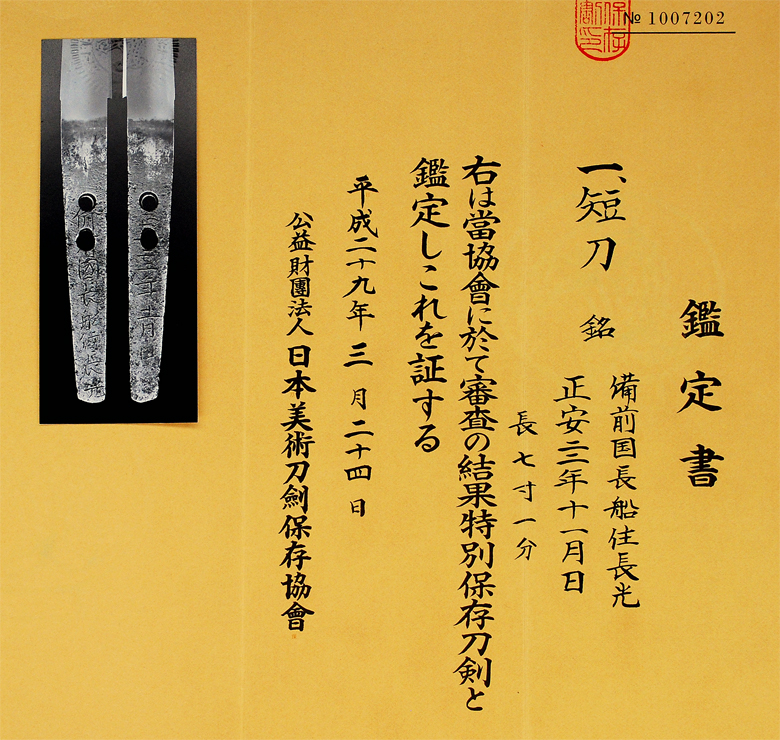 № 1007202
保存
割印
鑑定書
一、短刀 銘
備前国長船住長光
正安二二年十一月日
長七寸一分
右は當協會に於て審査の結果特別保存刀剣と
鑑定しこれを証する
平成二十九年三月二十四日
公益財團法人日本美術刀劍保存協會